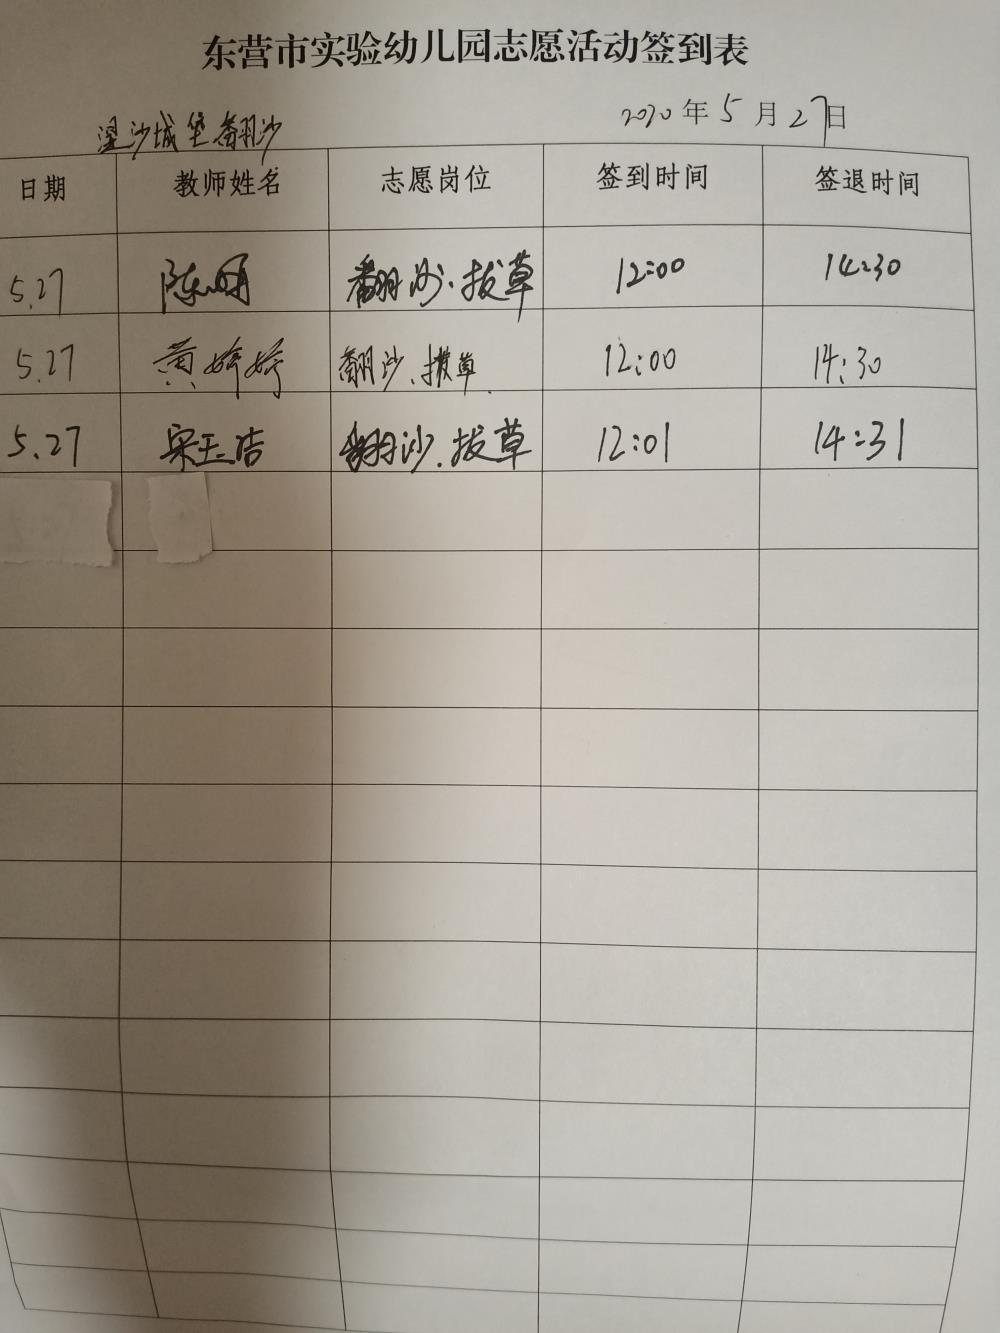 东营市实验幼儿园志愿活动签到表
沙城堡翻沙 2020年5月27日
日期 教师姓名 志愿岗位 签到时间 签退时间
5.27 陈 翻沙、拔草 12:00 14:30
5.27 黄婷婷 翻沙、拔草 12:00 14:30
5.27 宋玉洁 翻沙、拔草 12:01 14:31